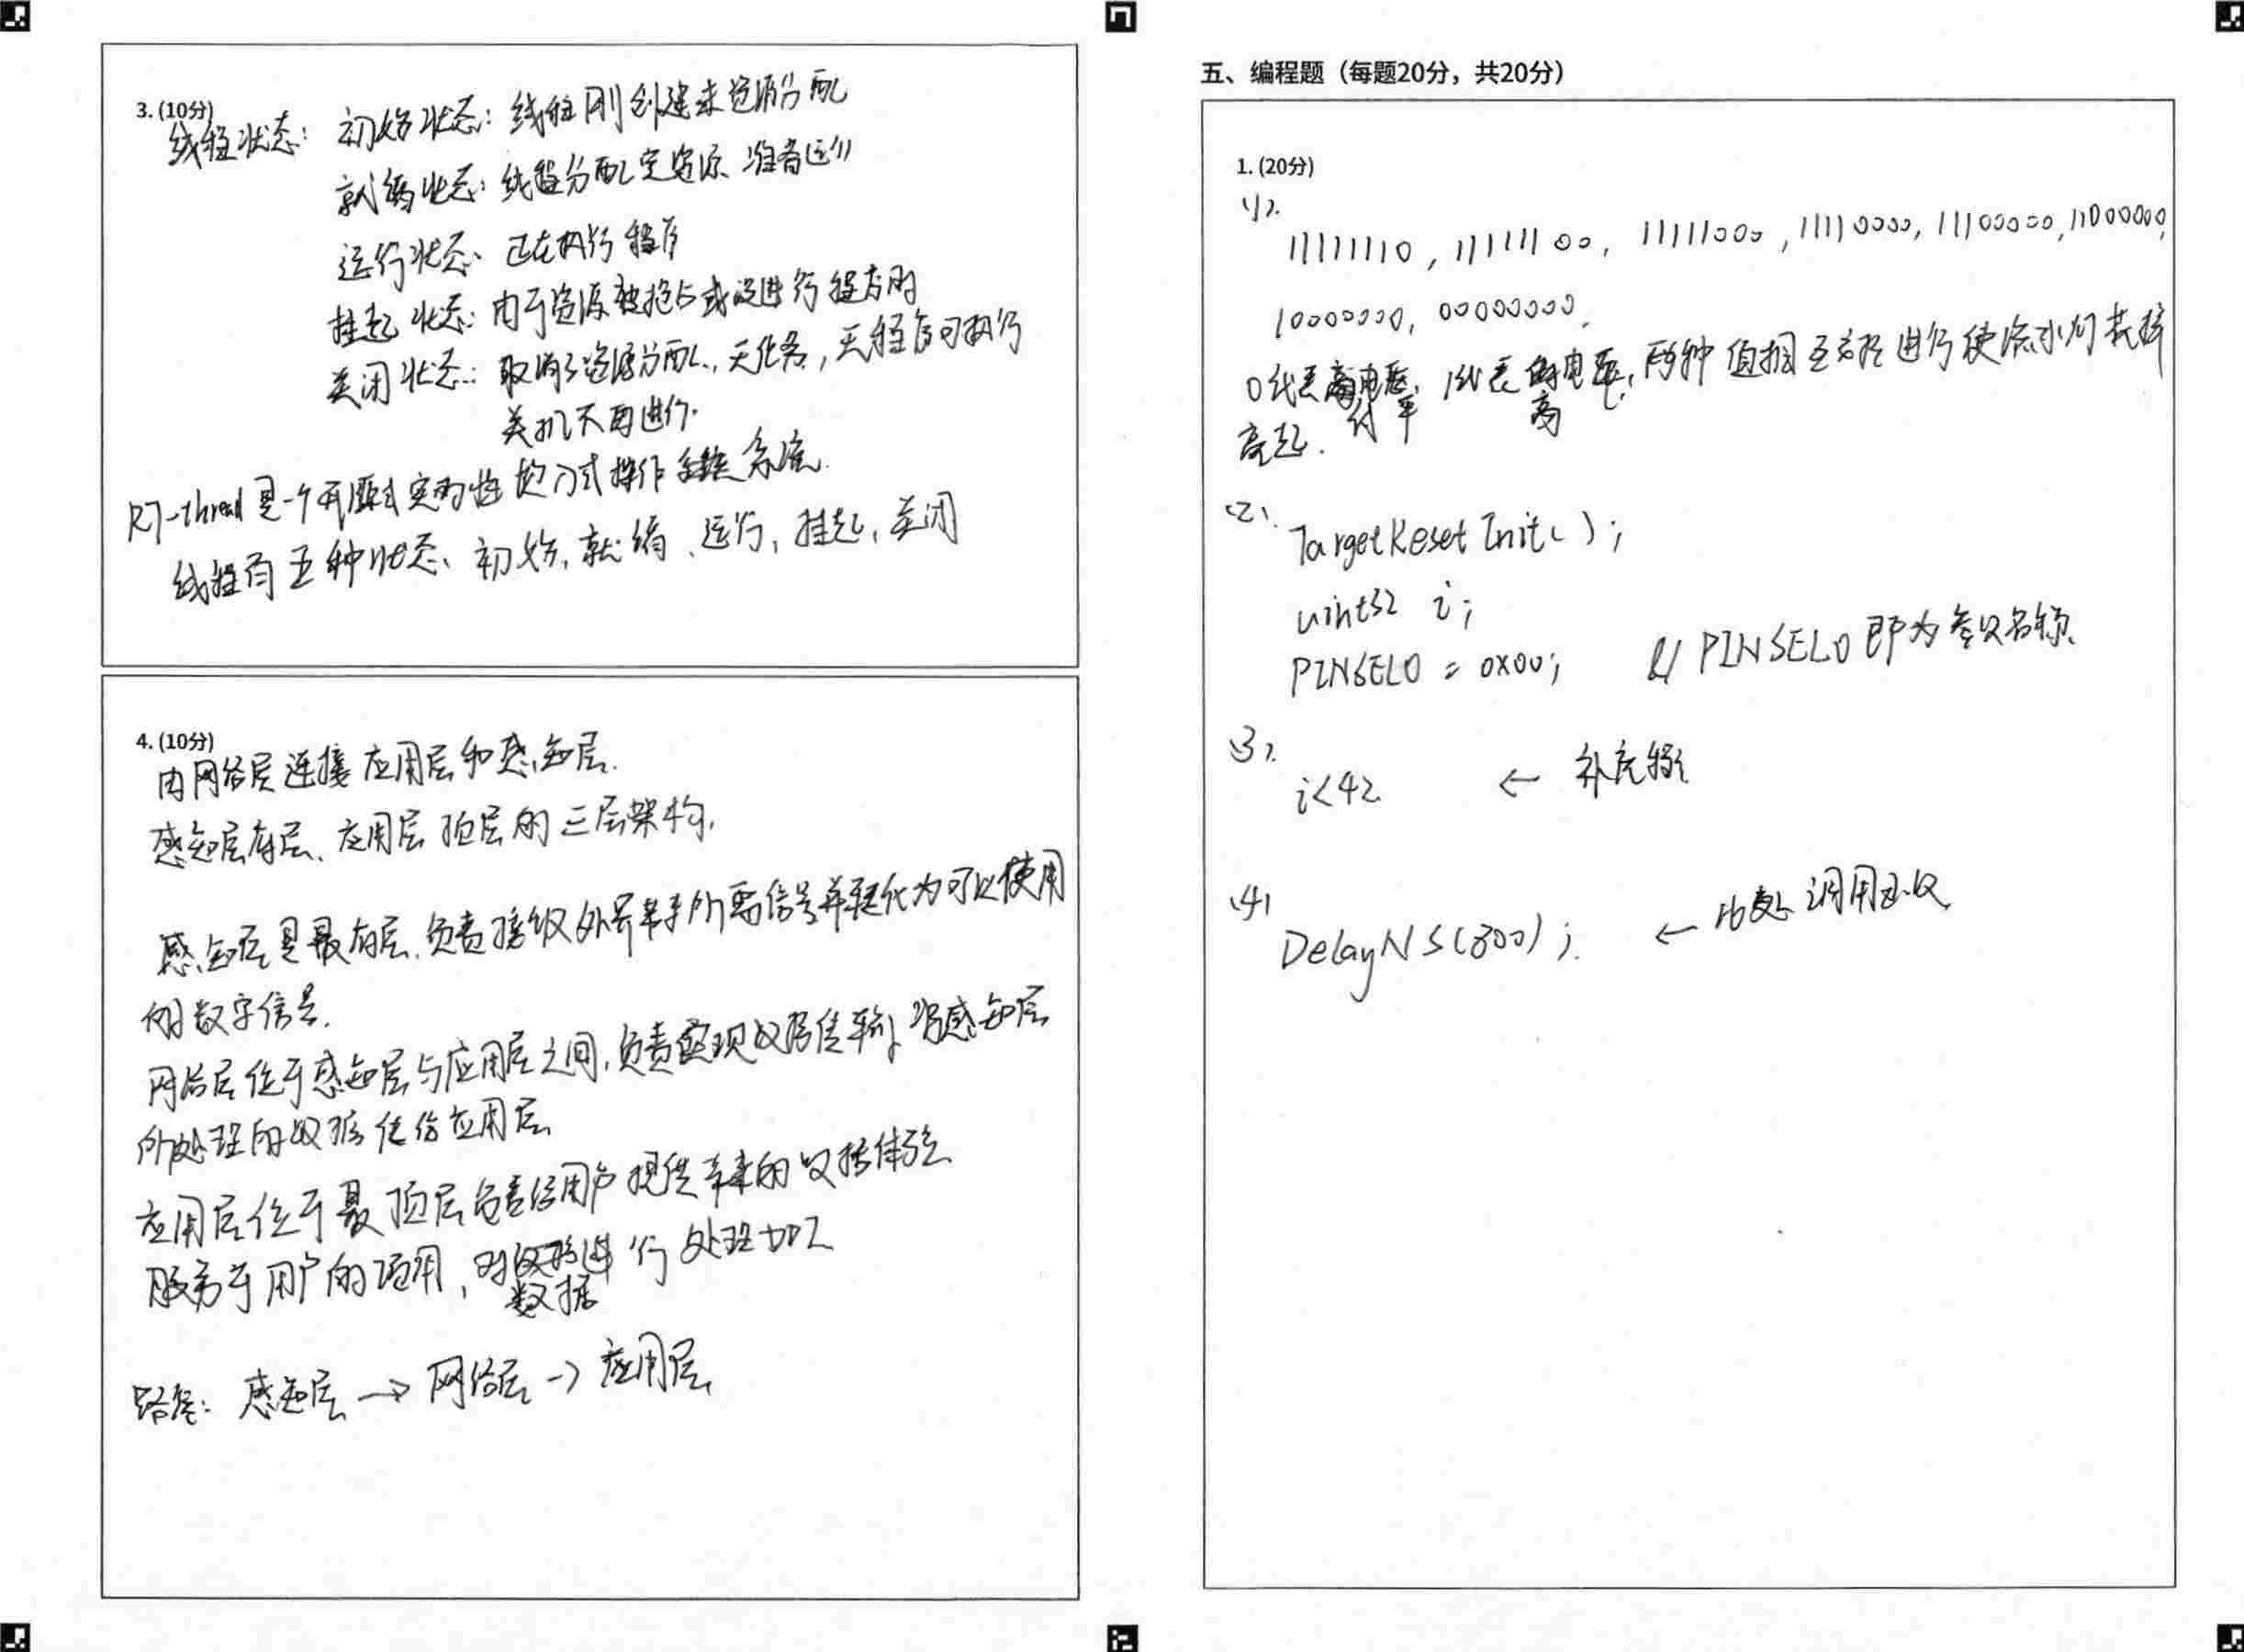 3. (10分)
线程状态: 初始状态: 线程刚创建未资源分配
就绪状态: 线程分配完资源、准备运行
运行状态、正在执行程序
挂起状态: 由于资源被抢占或没进行程序时
关闭状态: 取消了资源分配、无任务, 无程序可执行
关机不再进行.
RT-thread是一个开源式实时性嵌入式操作系统.
线程有五种状态、初始, 就绪、运行, 挂起, 关闭
4. (10分)
由网络层连接应用层和感知层.
感知层底层、应用层顶层的三层架构,
感知层是最底层, 负责接收外界所需信号并转化为可以使用
的数字信号.
网络层位于感知层与应用层之间, 负责实现数据传输, 将感知层
所处理的数据传给应用层
应用层位于最顶层负责给用户提供的数据体验
服务于用户的, 对数据进行处理加工
路径: 感知层 → 网络层 → 应用层
五、编程题（每题20分，共20分）
1. (20分)
(1).
11111110, 11111100, 11111000, 11110000, 11100000, 11000000,
10000000, 00000000.
0代表低电平, 1代表高电平, 两种值相互交替进行使流水灯交替
亮起.
(2).
TargetResetInit();
uint32 i;
PINSEL0 = 0x00; // PINSEL0即为参数名称.
(3).
i<42 ← 补充
(4)
DelayNS(300); ← 此处调用函数